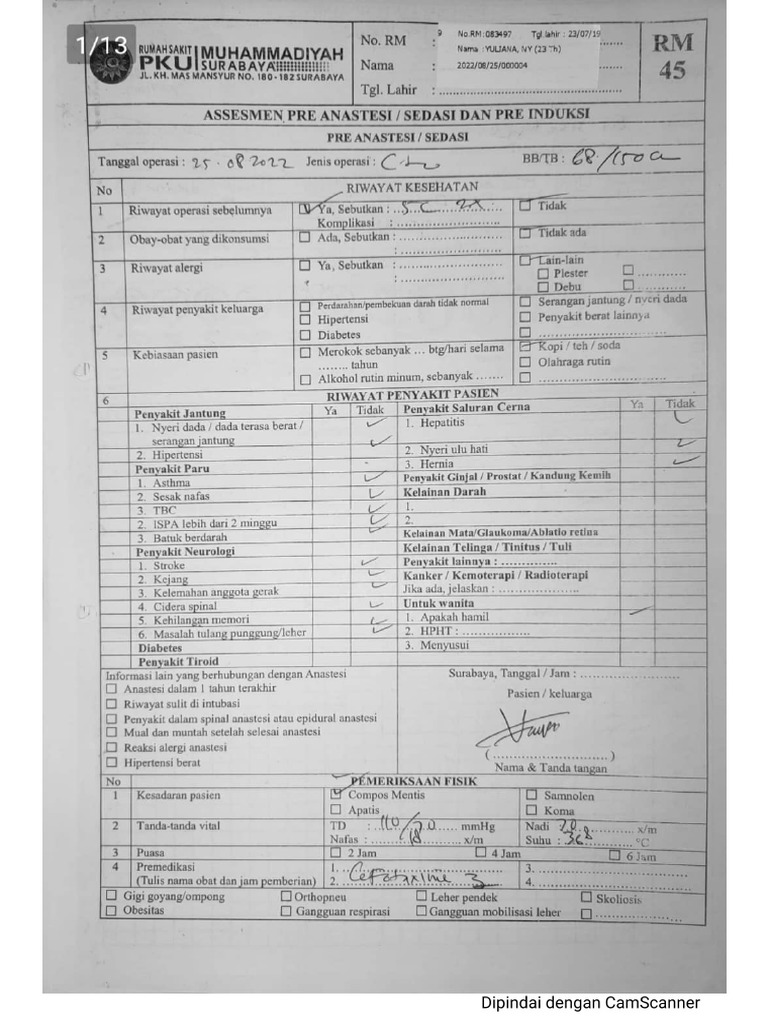 1/13
RUMAH SAKIT
PKU MUHAMMADIYAH
SURABAYA
JL. KH. MAS MANSYUR NO. 180 - 182 SURABAYA
No. RM :
No.RM : 083497 Tgl.lahir : 23/07/19
Nama :
Nama : YULIANA, NY (23 Th)
2022/08/25/000004
Tgl. Lahir :
RM
45
ASSESMEN PRE ANASTESI / SEDASI DAN PRE INDUKSI
PRE ANASTESI / SEDASI
Tanggal operasi : 25 . 08 2022 Jenis operasi : BB/TB : 68/150
No RIWAYAT KESEHATAN
1 Riwayat operasi sebelumnya Ya, Sebutkan : SC 2x Tidak
Komplikasi :
2 Obay-obat yang dikonsumsi Ada, Sebutkan : Tidak ada
3 Riwayat alergi Ya, Sebutkan : Lain-lain
Plester
Debu
4 Riwayat penyakit keluarga Perdarahan/pembekuan darah tidak normal Serangan jantung / nyeri dada
Hipertensi Penyakit berat lainnya
Diabetes
5 Kebiasaan pasien Merokok sebanyak ... btg/hari selama Kopi / teh / soda
........ tahun Olahraga rutin
Alkohol rutin minum, sebanyak .......
6 RIWAYAT PENYAKIT PASIEN
Penyakit Jantung Ya Tidak Penyakit Saluran Cerna Ya Tidak
1. Nyeri dada / dada terasa berat / 1. Hepatitis
serangan jantung
2. Hipertensi 2. Nyeri ulu hati
Penyakit Paru 3. Hernia
1. Asthma Penyakit Ginjal / Prostat / Kandung Kemih
2. Sesak nafas Kelainan Darah
3. TBC 1.
2. ISPA lebih dari 2 minggu 2.
3. Batuk berdarah Kelainan Mata/Glaukoma/Ablatio retina
Penyakit Neurologi Kelainan Telinga / Tinitus / Tuli
1. Stroke Penyakit lainnya : ..............
2. Kejang Kanker / Kemoterapi / Radioterapi
3. Kelemahan anggota gerak Jika ada, jelaskan : ....................
4. Cidera spinal Untuk wanita
5. Kehilangan memori 1. Apakah hamil
6. Masalah tulang punggung/leher 2. HPHT : .................
Diabetes 3. Menyusui
Penyakit Tiroid
Informasi lain yang berhubungan dengan Anastesi Surabaya, Tanggal / Jam :
Anastesi dalam 1 tahun terakhir Pasien / keluarga
Riwayat sulit di intubasi
Penyakit dalam spinal anastesi atau epidural anastesi
Mual dan muntah setelah selesai anastesi
Reaksi alergi anastesi
Hipertensi berat Nama & Tanda tangan
No PEMERIKSAAN FISIK
1 Kesadaran pasien Compos Mentis Samnolen
Apatis Koma
2 Tanda-tanda vital TD : 110/70 mmHg Nadi x/m
Nafas : 18 x/m Suhu : 36 °C
3 Puasa 2 Jam 4 Jam 6 Jam
4 Premedikasi 1. 3.
(Tulis nama obat dan jam pemberian) 2. Cefotaxime 4.
Gigi goyang/ompong Orthopneu Leher pendek Skoliosis
Obesitas Gangguan respirasi Gangguan mobilisasi leher
Dipindai dengan CamScanner